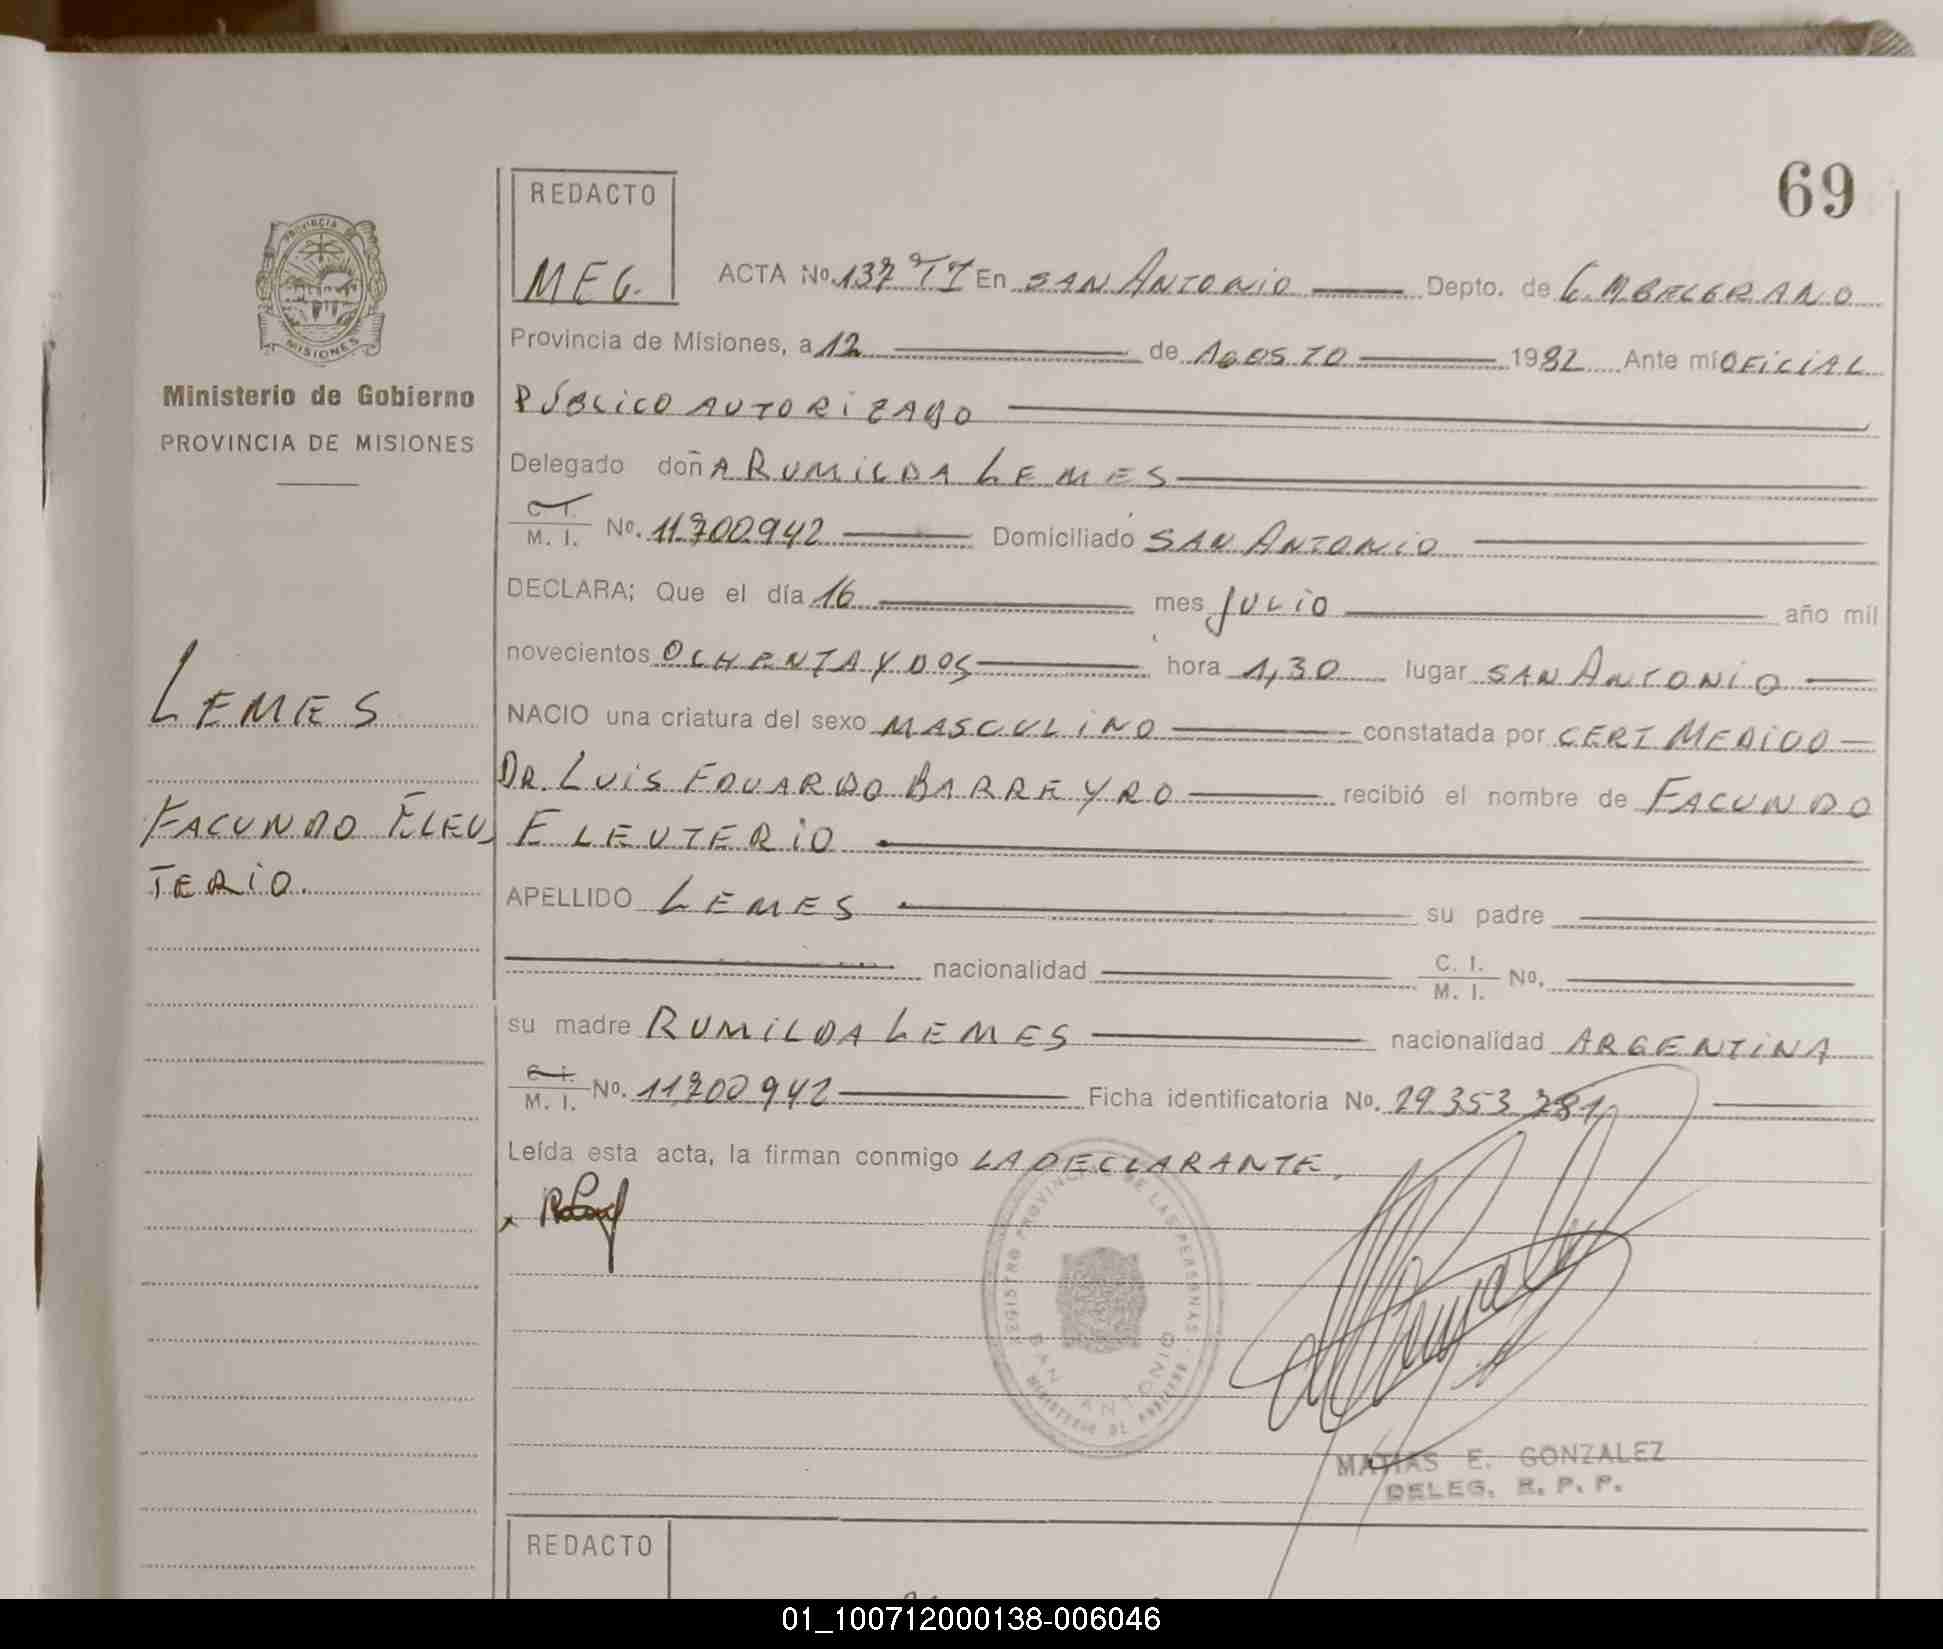 69
REDACTO
MEG.
PROVINCIA DE
MISIONES
Ministerio de Gobierno
PROVINCIA DE MISIONES
LEMES
FACUNDO ELEU
TERIO.
ACTA No. 137 TI En SAN ANTONIO Depto. de G. M BELGRANO
Provincia de Misiones, a 12 de AGOSTO 1982 Ante mí OFICIAL
PÚBLICO AUTORIZADO
Delegado doñA RUMILDA LEMES
C. I. M. I. No. 11.700942 Domiciliado SAN ANTONIO
DECLARA; Que el día 16 mes JULIO año mil
novecientos OCHENTA Y DOS hora 1,30 lugar SAN ANTONIO
NACIO una criatura del sexo MASCULINO constatada por CERT MEDICO
DR. LUIS EDUARDO BARREYRO recibió el nombre de FACUNDO
ELEUTERIO
APELLIDO LEMES su padre
nacionalidad C. I. M. I. No.
su madre RUMILDA LEMES nacionalidad ARGENTINA
C. I. M. I. No. 11.700942 Ficha identificatoria No. 29.353.281
Leída esta acta, la firman conmigo LA DECLARANTE,
REGISTRO PROVINCIAL DE LAS PERSONAS
SAN ANTONIO
MATIAS E. GONZALEZ
DELEG. R. P. P.
REDACTO
01_100712000138-006046